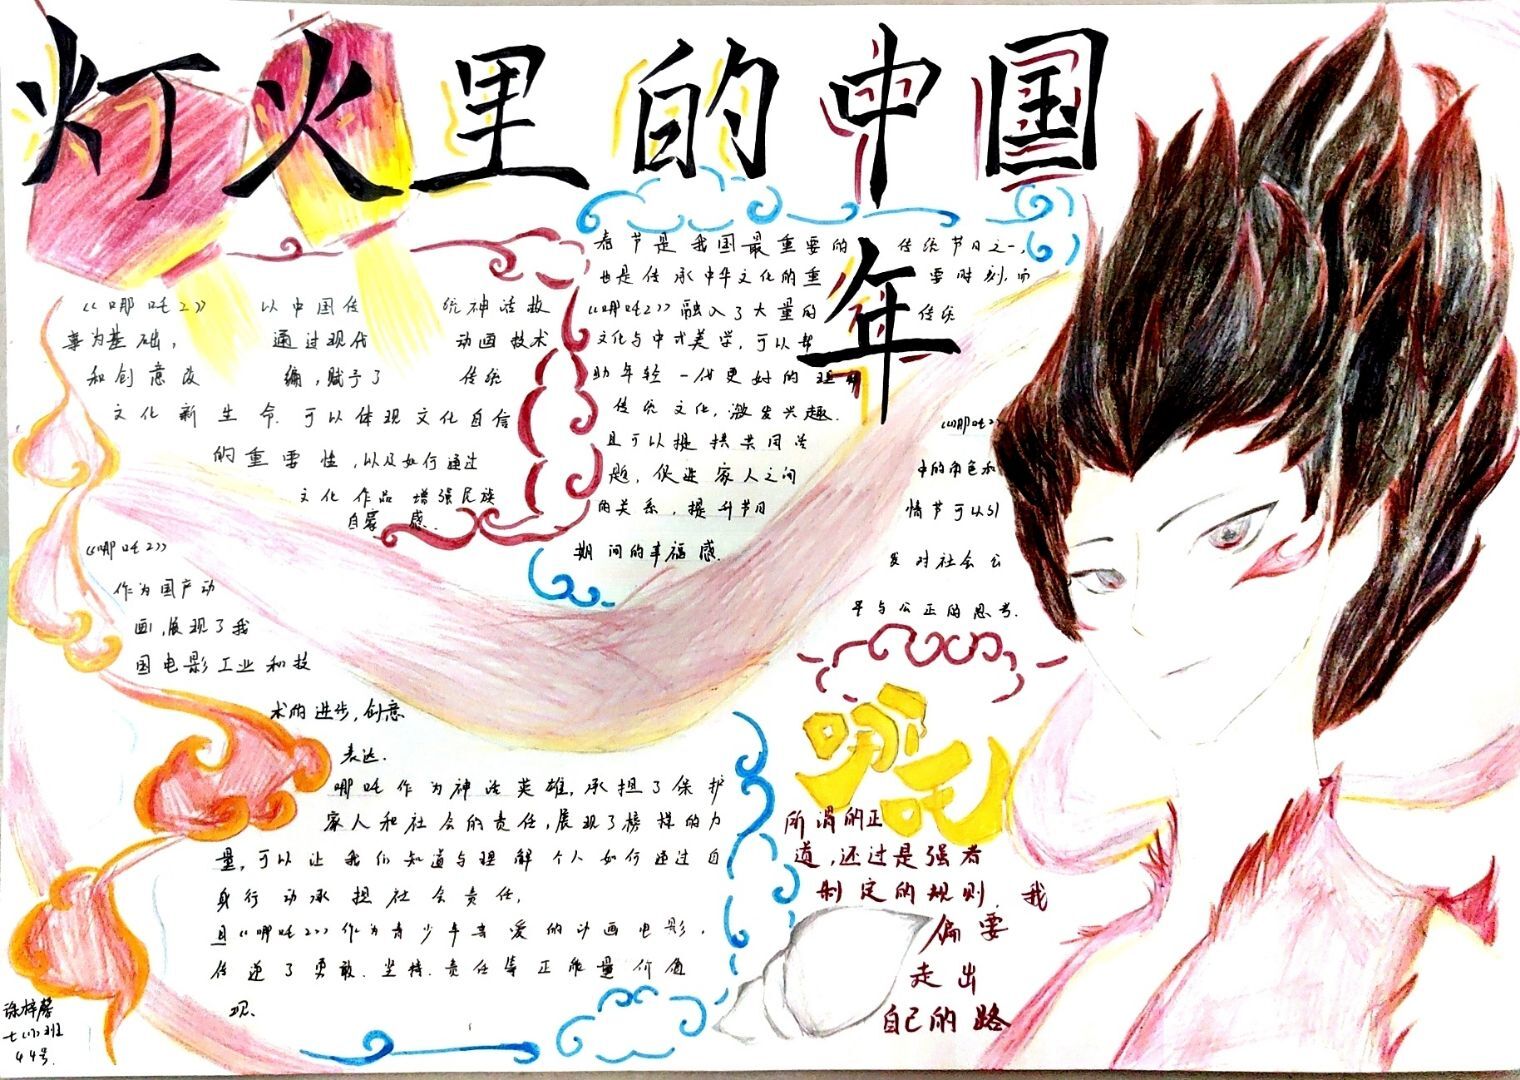 灯火里的中国
年
《哪吒2》 以中国传 统神话故
事为基础, 通过现代 动画技术
和创意改 编,赋予了 传统
文化新生命.可以体现文化自信
的重要性,以及如何通过
文化作品增强民族
自豪感.
春节是我国最重要的 传统节日之一,
也是传承中华文化的重 要时刻.而
《哪吒2》融入了大量的 传统
文化与中式美学,可以帮
助年轻一代更好的理解
传统文化,激发兴趣.
且可以提供共同话
题,促进家人之间
的关系,提升节日
期间的幸福感.
《哪吒2》
中的角色和
情节可以引
发对社会公
平与公正的思考.
《哪吒2》
作为国产动
画,展现了我
国电影工业和技
术的进步,创意
表达.
哪吒作为神话英雄,承担了保护
家人和社会的责任,展现了榜样的力
量,可以让我们知道与理解个人如何通过自
身行动承担社会责任.
且《哪吒2》作为青少年喜爱的动画电影,
传递了勇敢.坚持.责任等正能量价值
观.
哪吒
所谓的正
道,还过是强者
制定的规则.我
偏要
走出
自己的路
梓馨
班
44号.